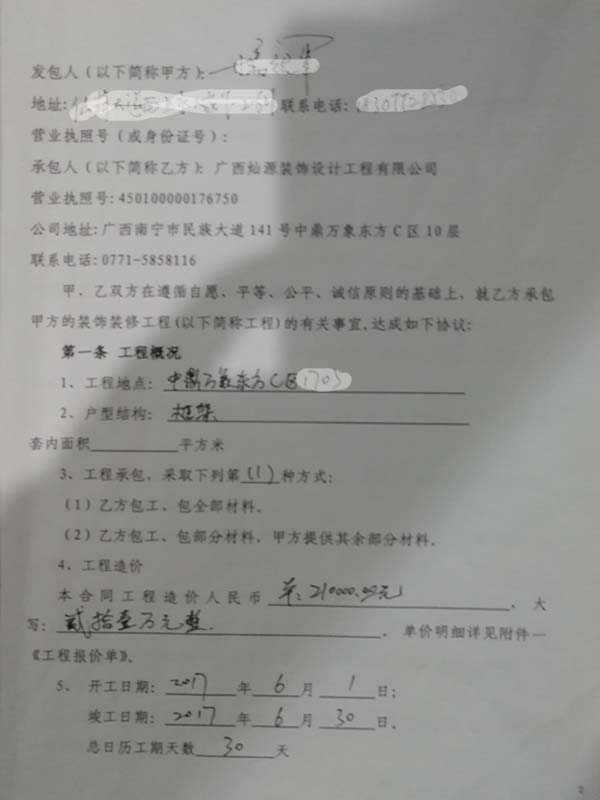 发包人（以下简称甲方）：
地址： 联系电话：
营业执照号（或身份证号）：
承包人（以下简称乙方）：广西灿源装饰设计工程有限公司
营业执照号：450100000176750
公司地址：广西南宁市民族大道141号中鼎万象东方C区10层
联系电话：0771-5858116
甲、乙双方在遵循自愿、平等、公平、诚信原则的基础上，就乙方承包
甲方的装饰装修工程(以下简称工程)的有关事宜,达成如下协议：
第一条 工程概况
1、工程地点：中鼎万象东方C区1703
2、户型结构：框架
套内面积 平方米
3、工程承包，采取下列第(1)种方式：
（1）乙方包工、包全部材料．
（2）乙方包工、包部分材料，甲方提供其余部分材料．
4、工程造价
本合同工程造价人民币 ￥：210000.00元 ，大
写：贰拾壹万元整． ，单价明细详见附件一
《工程报价单》．
5、开工日期：2017 年 6 月 1 日；
竣工日期：2017 年 6 月 30 日．
总日历工期天数 30 天
2